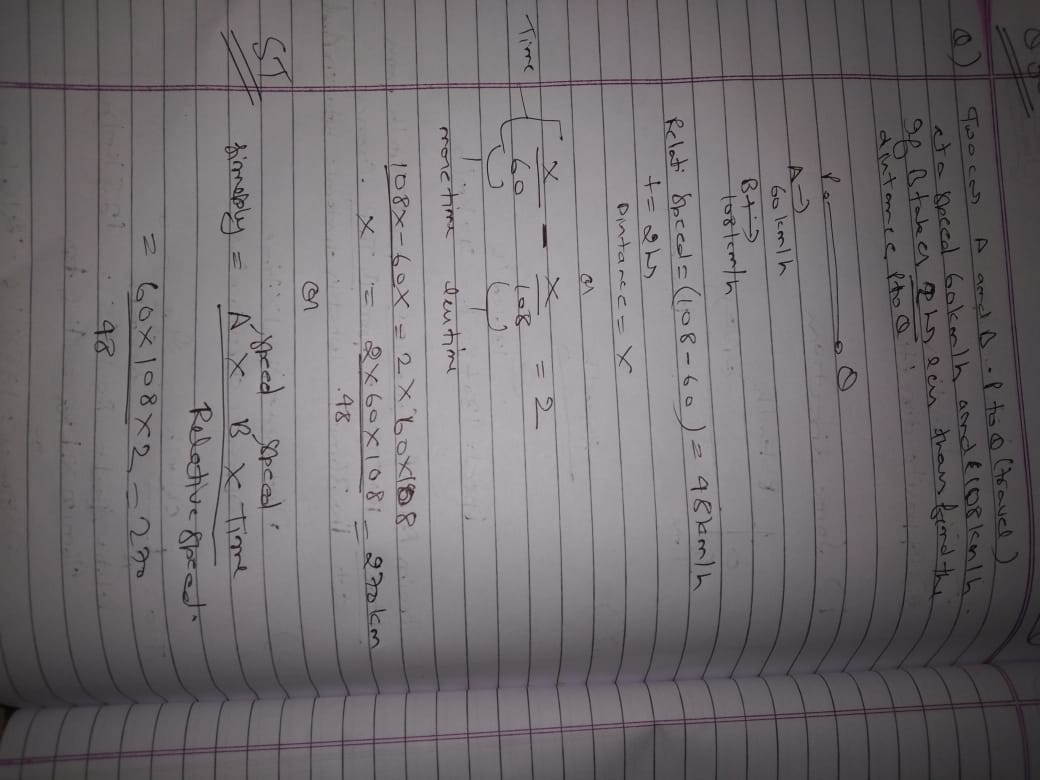 Q)
Two cars A and B . P to Q (travel)
at a speed 60km/h and 108km/h.
If B takes 2 hrs less than find the
distance P to Q
P
Q
A→
60 km/h
B→
108 km/h
Relati speed = (108-60) = 48km/h
t = 2hrs
Distance = x
or
Time
x/60 - x/108 = 2
more time less time
108x - 60x = 2 x 60 x 108
x = 2x60x108/48 = 270km
or
ST
Simply = A speed x B speed x Time / Relative speed.
= 60x108x2/48 = 270